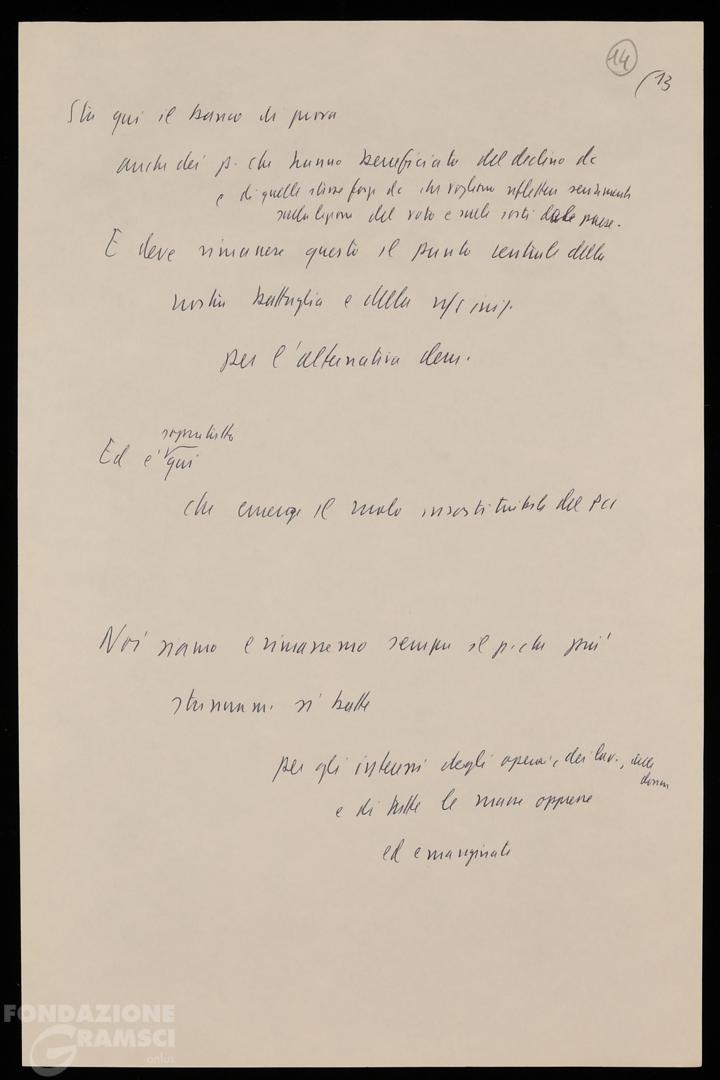 14
(13
Sta qui il banco di prova
anche dei p. che hanno beneficiato del declino dc
e di quelle stesse forze dc che vogliono riflettere seriamente
sulla lezione del voto e sulle sorti del paese.
E deve rimanere questo il punto centrale della
nostra battaglia e della ns/ iniz.
per l'alternativa dem.
soprattutto
Ed è qui
che emerge il ruolo insostituibile del PCI
Noi siamo e rimarremo sempre il p. che più
strenuam. si batte
per gli interessi degli operai, dei lav., delle
donne
e di tutte le masse oppresse
ed emarginate
FONDAZIONE
GRAMSCI
onlus